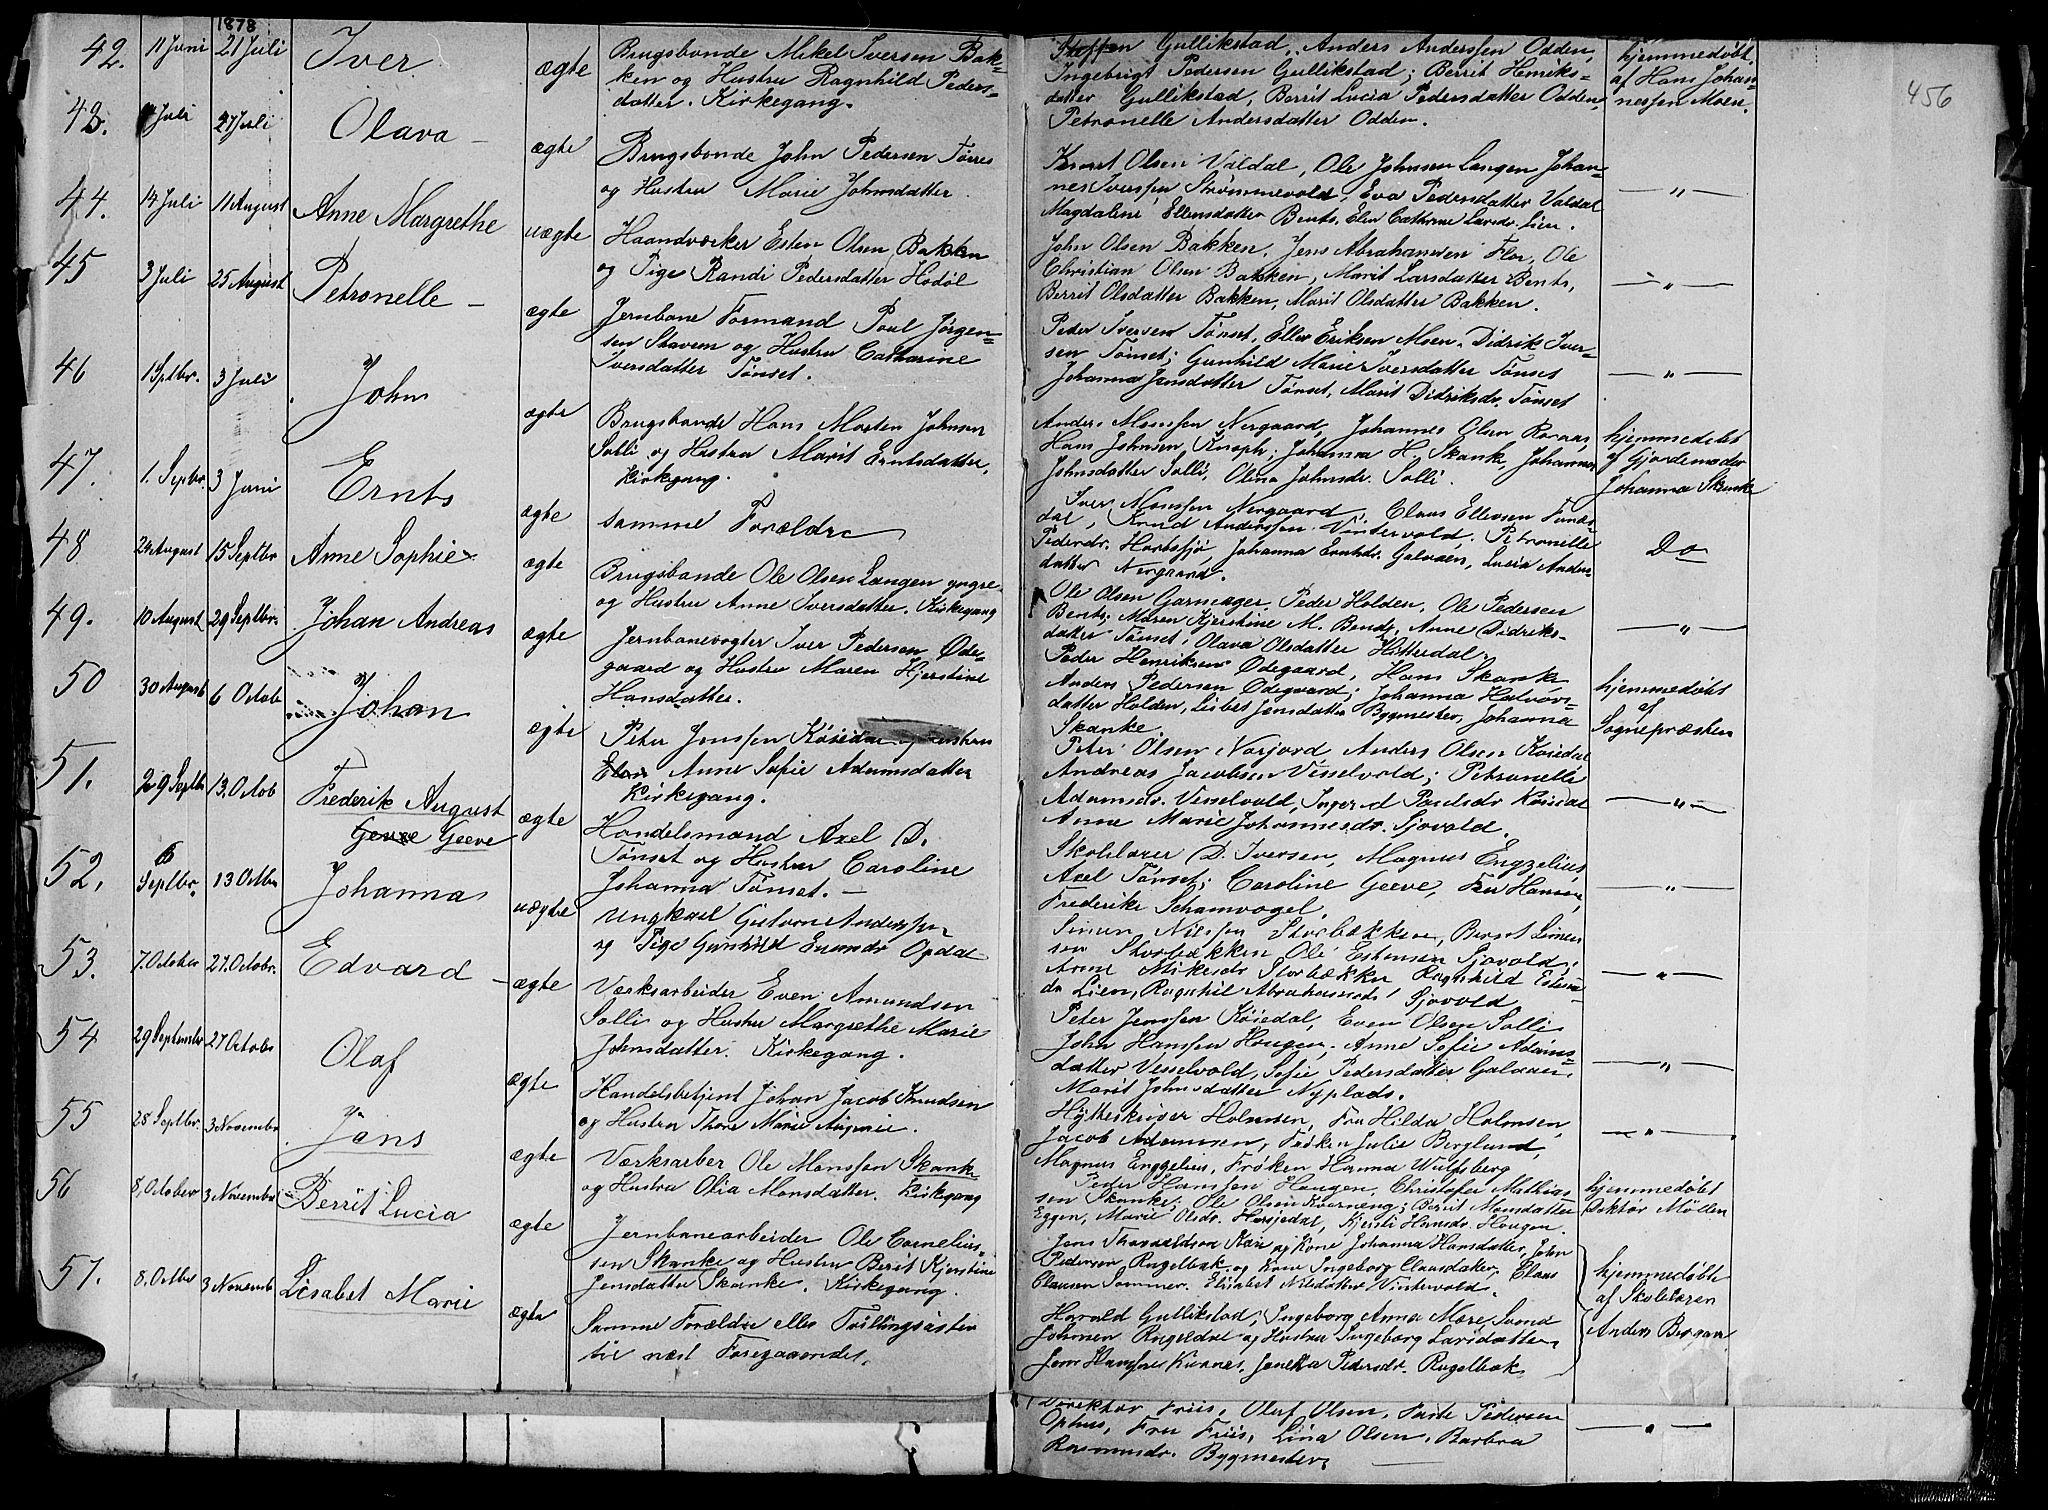 1878
456
42. 11 Juni 21 Juli Iver ægte Brugsbonde Mikel Iversen Bak-
ken og Hustru Ragnhild Peders-
datter. Kirkegang.
Steffen Gullikstad, Anders Anderssen Odden,
Ingebrigt Pedersen Gullikstad; Berrit Henriks-
datter Gullikstad, Berrit Lucia Pedersdatter Odden,
Petronelle Andersdatter Odden.
hjemmedøbt
af Hans Johan-
nessen Moen.
43. Juli 27 Juli Olava – ægte Brugsbonde John Pedersen Tørres
og Hustru Marie Johnsdatter
Olsen Valdal, Ole Johnsen Langen Johan-
nes Iverssen Strømmevold, Eva Pedersdatter Valdal
Magdalene Ellensdatter Bents, Elen Cathrine Lien.
— " —
44. 14 Juli 11 August Anne Margrethe uægte Haandværker Esten Olsen Bakken
og Pige Randi Pedersdatter Hodøl
John Olsen Bakken, Jens Abrahamsen Flor, Ole
Christian Olsen Bakken, Marit Larsdatter Bents,
Berrit Olsdatter Bakken, Marit Olsdatter Bakken.
— " —
45 3 Juli 25 August Petronelle – ægte Jernbane Formand Poul Jørgen-
sen Staven og Hustru Catharine
Iversdatter Tønset.
Peder Iversen Tønset, Ellev Eriksen Moen, Didrik Iver-
sen Tønset; Gunhild Marie Iversdatter Tønset
Johanna Jensdatter Tønset, Marit Didriksdr. Tønset
— " —
46 1 Septbr. 3 Juli John ægte Brugsbonde Hans Morten Johnsen
Solli og Hustru Marit Erntsdatter,
Kirkegang.
Anders Monssen Nergaard, Johannes Olsen
Hans Johnsen Johanna H. Skank, Johanna
Johnsdatter Solli, Olina Johnsdr. Solli.
hjemmedøbt
af Gjordemoder
Johanna Skanke
47. 1. Septbr. 3 Juni Ernts ægte samme Forældre
Iver Monssen Nergaard, Claus Ellevsen
dal, Knud Anderssen Vintervold, Petronelle
Pedersdr. Johanna Erntsdr. Galaaen, Lucia Anders
datter Nergaard.
Do
48 24 August 15 Septbr Anne Sophie ægte Brugsbonde Ole Olsen Langen yngre
og Hustru Anne Iversdatter. Kirkegang
Ole Olsen Garmager, Peder Holden, Ole Pedersen
Bents, Maren Kjerstine M. Bends, Anne Didriks-
datter Tønset, Olava Olsdatter Hitterdal.
— " —
49. 10 August 29 Septbr. Johan Andreas ægte Jernbanevogter Iver Pedersen Øde-
gaard og Hustru Maren Kjerstine
Hansdatter.
Peder Henriksen Ødegaard, Hans Skank
Anders Pedersen Ødegaard; Johanna Halvors-
datter Holden, Lisbet Jensdatter Bygmester, Johanna
Skanke.
hjemmedøbt
af
Sognepræsten
50 30 August 6 Octob Johan ægte Peter Jenssen Køsedal og Hustru
Anne Sofie Adamsdatter
Kirkegang.
Peter Olsen Anders Olsen Køsedal
Andreas Jacobsen Vesselvold; Petronelle
Adamsdr. Vesselvold, Ingerd Paulsdr Køsedal
Anne Marie Johannesdr. Sjovold.
— " —
51. 29 Septbr 13. Octob Frederik August
Geeve ægte Handelsmand Axel D.
Tønset og Hustru Caroline
Johanna Tønset. —
Skolelærer D. Iversen, Magnus Engzelius,
Axel Tønset; Caroline Geeve, Fru Hansen,
Frederike Schamvogel.
— " —
52. 6 Septbr. 13 Octbr Johanna uægte Ungkarl Anderssen
og Pige Gunhild Opdal
Simen Nilssen Storbækken, Berret Simen
sen Storbækken Ole Estensen Sjovold;
Anne Mikesdr Storbækken Ragnhild Estens
dr Lien, Ragnhil Abrahamsdr Sjovold
— " —
53. 7. October 27. Octobr. Edvard – ægte Værksarbeider Even Amundsen
Solli og Hustru Margrethe Marie
Johnsdatter. Kirkegang.
Peter Jenssen Køsedal, Even Olsen Solli
John Hanssen Hougen, Anne Sofie Adams-
datter Vesselvold, Sofie Pedersdatter Galaaen,
Marit Johnsdatter Nyplads.
— " —
54 29 September 27 Octobr Olaf ægte Handelsbetjent Johan Jacob Knudsen
og Hustru Thora Marie
Hytteskriver Holmsen, Fru Hilda Holmsen,
Jacob Adamsen, Frøken Julie Berglund,
Magnus Engzelius, Frøken Hanna Wulfsberg
— " —
55 28 Septbr. 3 November Jens ægte Værksarber Ole Monssen Skanke
og Hustru Olia Monsdatter. Kirkegang
Peder Hanssen Hougen, Christofer Mathias
sen Skanke; Ole Olsen Berrit Monsdatter
Eggen, Marie Olsdr. Harsjedal, Kjersti Hansdr. Hougen
hjemmedøbt
Doktor Møller
56 8, October 3 November Berrit Lucia ægte Jernbanearbeider Ole Cornelius-
sen Skanke og Hustru Berit Kjerstine
Jensdatter Skanke. Kirkegang.
Jens Thorvaldsen og Kone Johanna Hansdatter, John
Pedersen Rugelbak og Kone Ingeborg Claasdatter, Claus
Clausen Sommer. Elisabet Nilsdatter Vintervold.
hjemmedøbt
af Skolelæren
Anders Bergan
57. 8. Octbr 3 Novembr Lisabet Marie ægte Samme Forældre eller Tvillingsøster
til næst Foregaaende.
Harald Gullikstad, Ingeborg Anna Svend
Johnsen Rugeldal og Hustru Ingeborg Larsdatter,
Jens Hanssen Jonetta Pedersdr. Rugelbak
Direktør Friis, Oluf Olsen, Pedersen
Ophus, Fru Friis, Lina Olsen, Barbra
Rasmusdr. Bygmester,
— " —